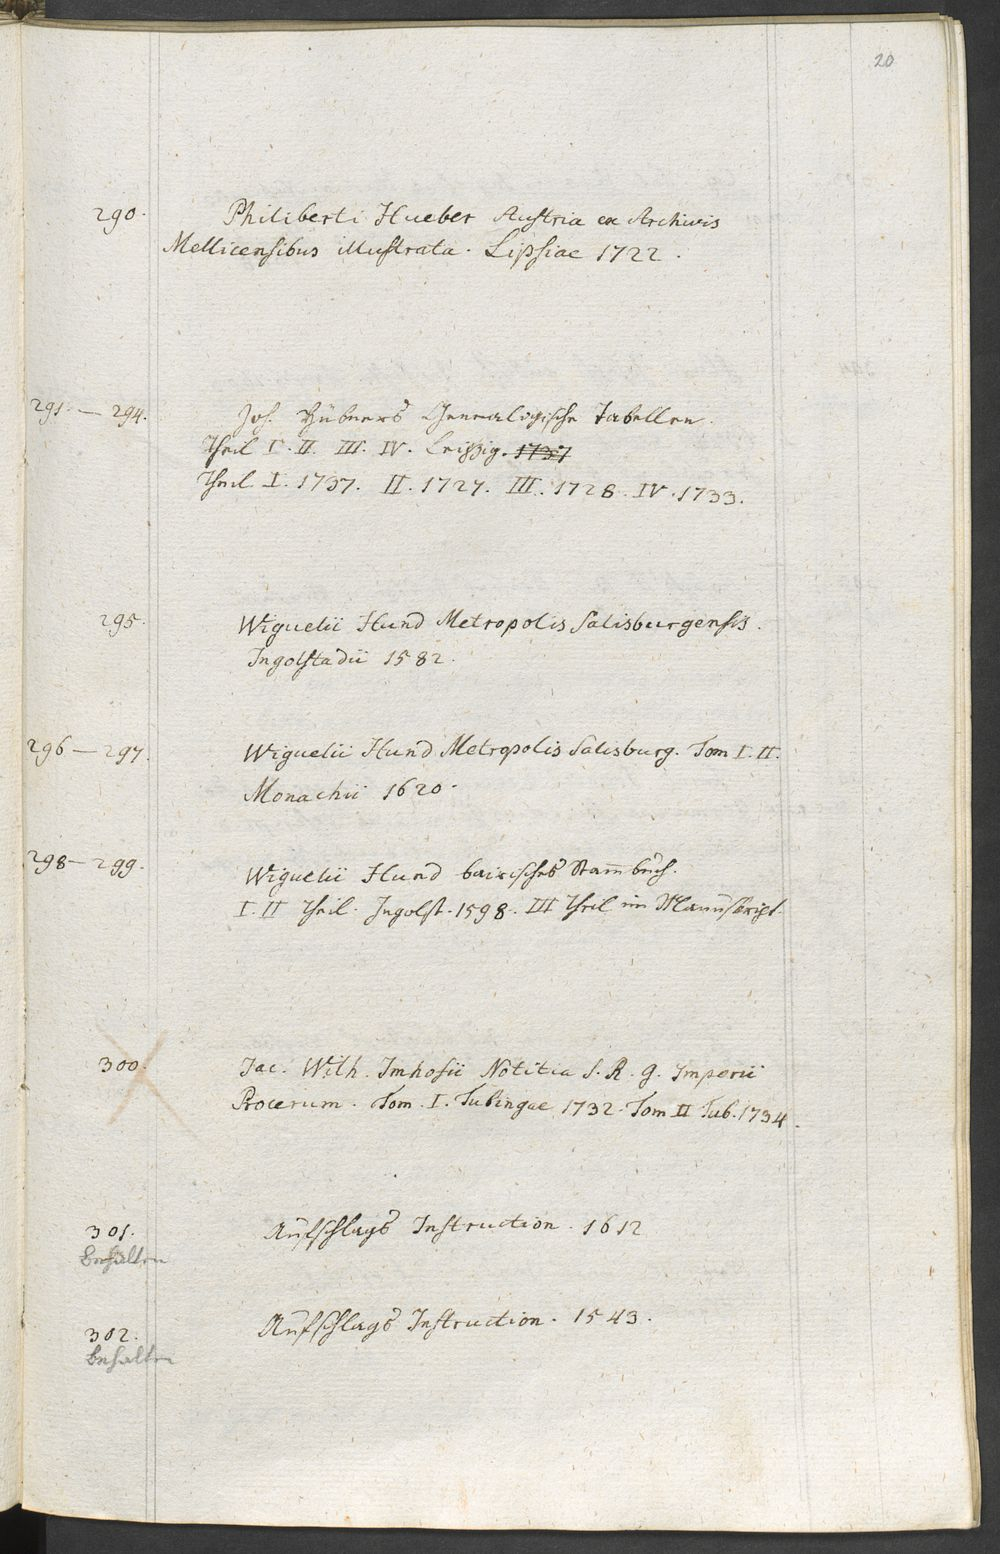 20
290. Philiberti Hueber Austria ex Archivis
Mellicensibus illustrata. Lipsiae 1722.
291. — 294. Joh. Hübners Genealogische Tabellen.
Theil I. II. III. IV. Leipzig. 1737
Theil. I. 1737. II. 1727. III. 1728. IV. 1733.
295. Wiguelii Hund Metropolis Salisburgensis.
Ingolstadii 1582.
296 — 297. Wiguelii Hund Metropolis Salisburg. Tom I. II.
Monachii 1620.
298 — 299. Wiguelii Hund bairisches Stam̄buch.
I. II Theil. Ingolst. 1598. III Theil im Manuscript.
300. Jac. Wilh. Imhofii Notitia S. R. G. Imperii
Procerum. Tom. I. Tubingae 1732. Tom II Tub. 1734.
301. Aufschlags Instruction. 1612
Behalten
302. Aufschlags Instruction. 1543.
behalten